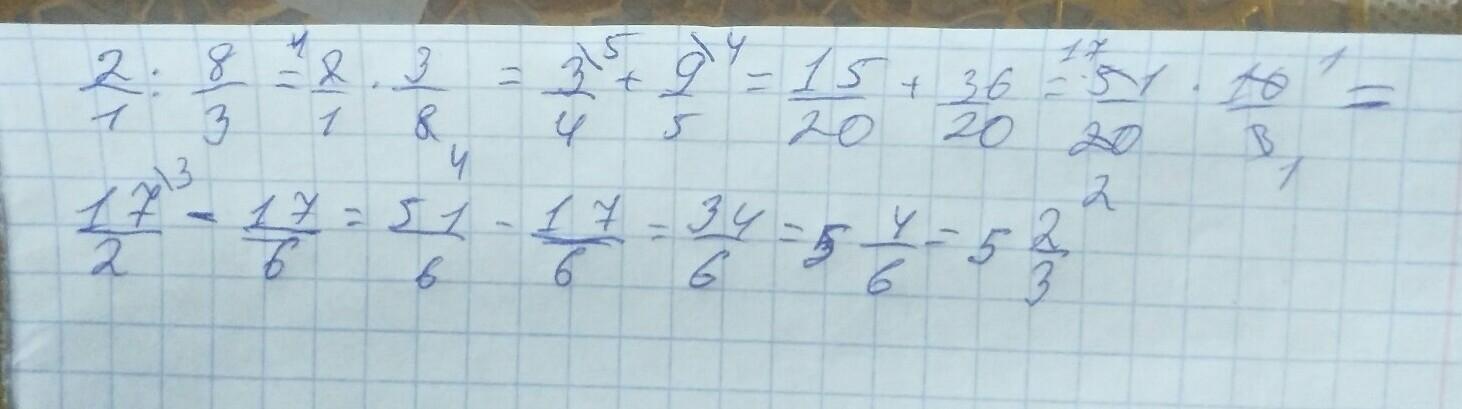 2/1 : 8/3 = 2/1 · 3/8 = 3/4 \5 + 9/5 \4 = 15/20 + 36/20 = 51/20 · 10/3 =
17/2 \3 - 17/6 = 51/6 - 17/6 = 34/6 = 5 4/6 = 5 2/3